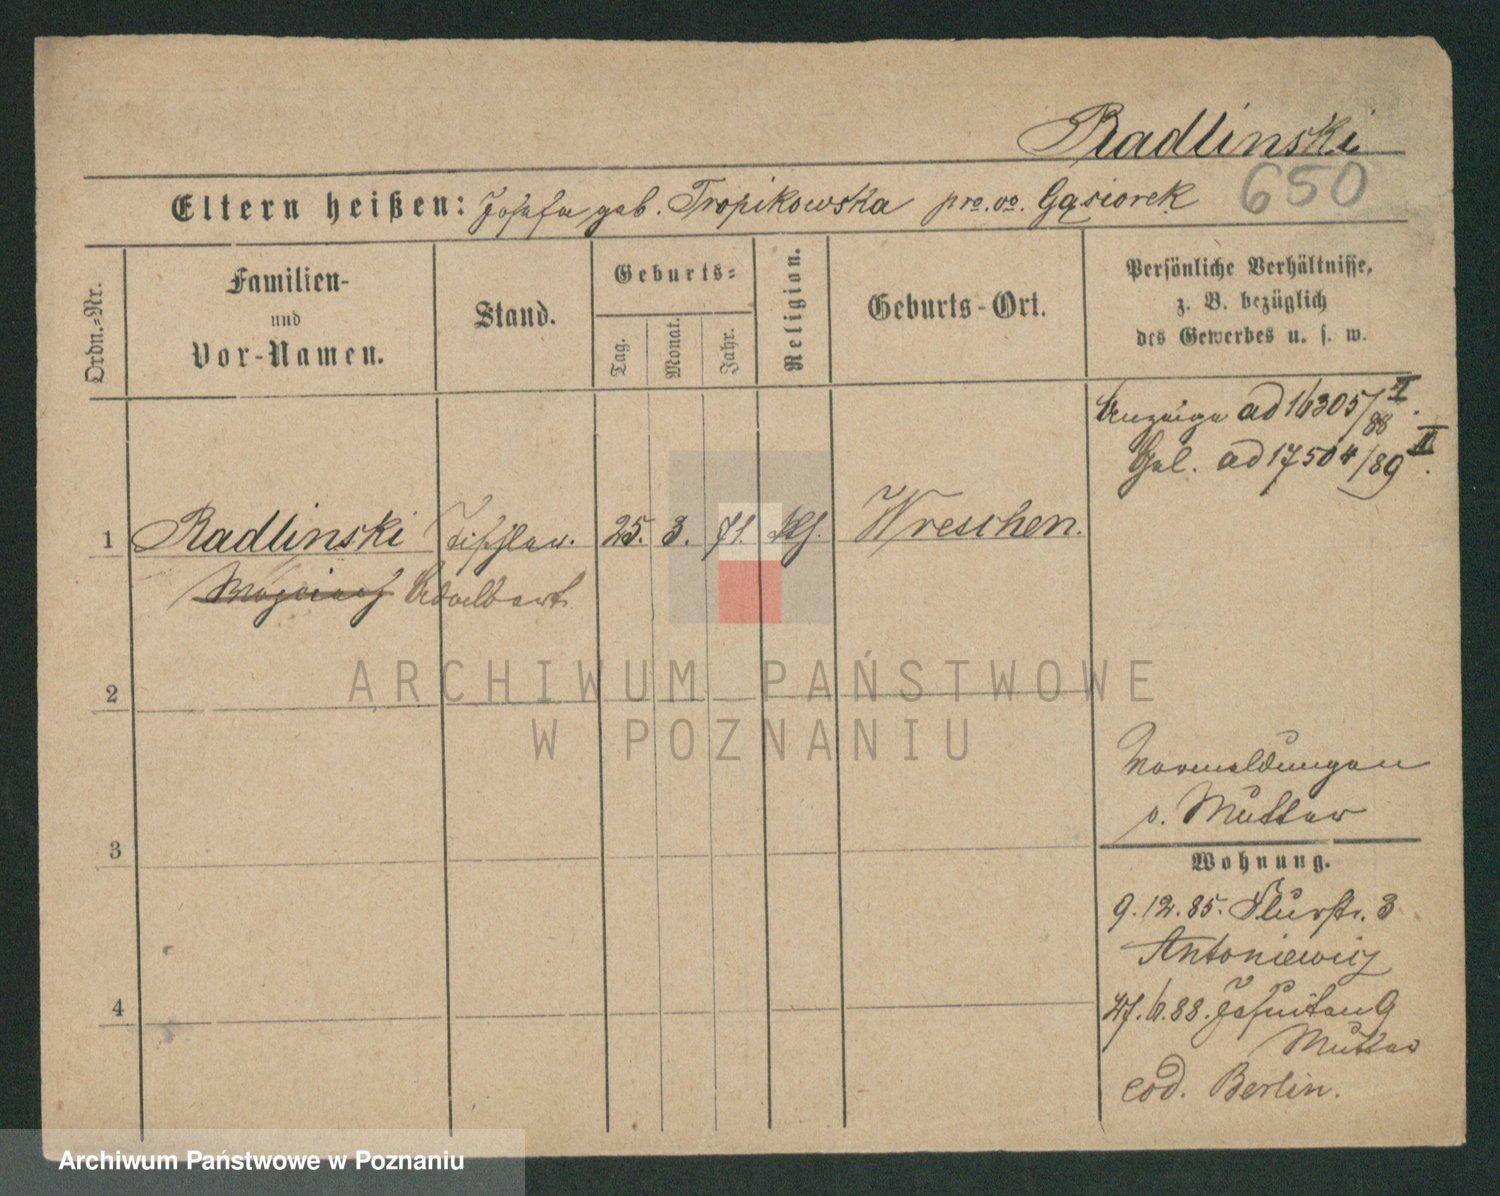 Radlinski
650
Eltern heißen: Josefa geb. Tropikowska pro. vo. Gąsiorek
Ordn.-Nr.
Familien-
und
Vor-Namen.
Stand.
Geburts-
Tag.
Monat.
Jahr.
Religion.
Geburts-Ort.
Persönliche Verhältnisse,
z. B. bezüglich
des Gewerbes u. s. w.
Anzeige ad 16305/88 I.
Gel. ad 17504/89 II.
1 Radlinski Tischler. 25. 3. 71. Kth. Wreschen.
Woyciech Adalbert
2
ARCHIWUM PAŃSTWOWE
W POZNANIU
Vormeldungen
v. Mutter
3
Wohnung.
9.12.85. Flurstr. 3
Antoniewicz
27.6.88. Jesuiten 9
Mutter
4
eod. Berlin.
Archiwum Państwowe w Poznaniu